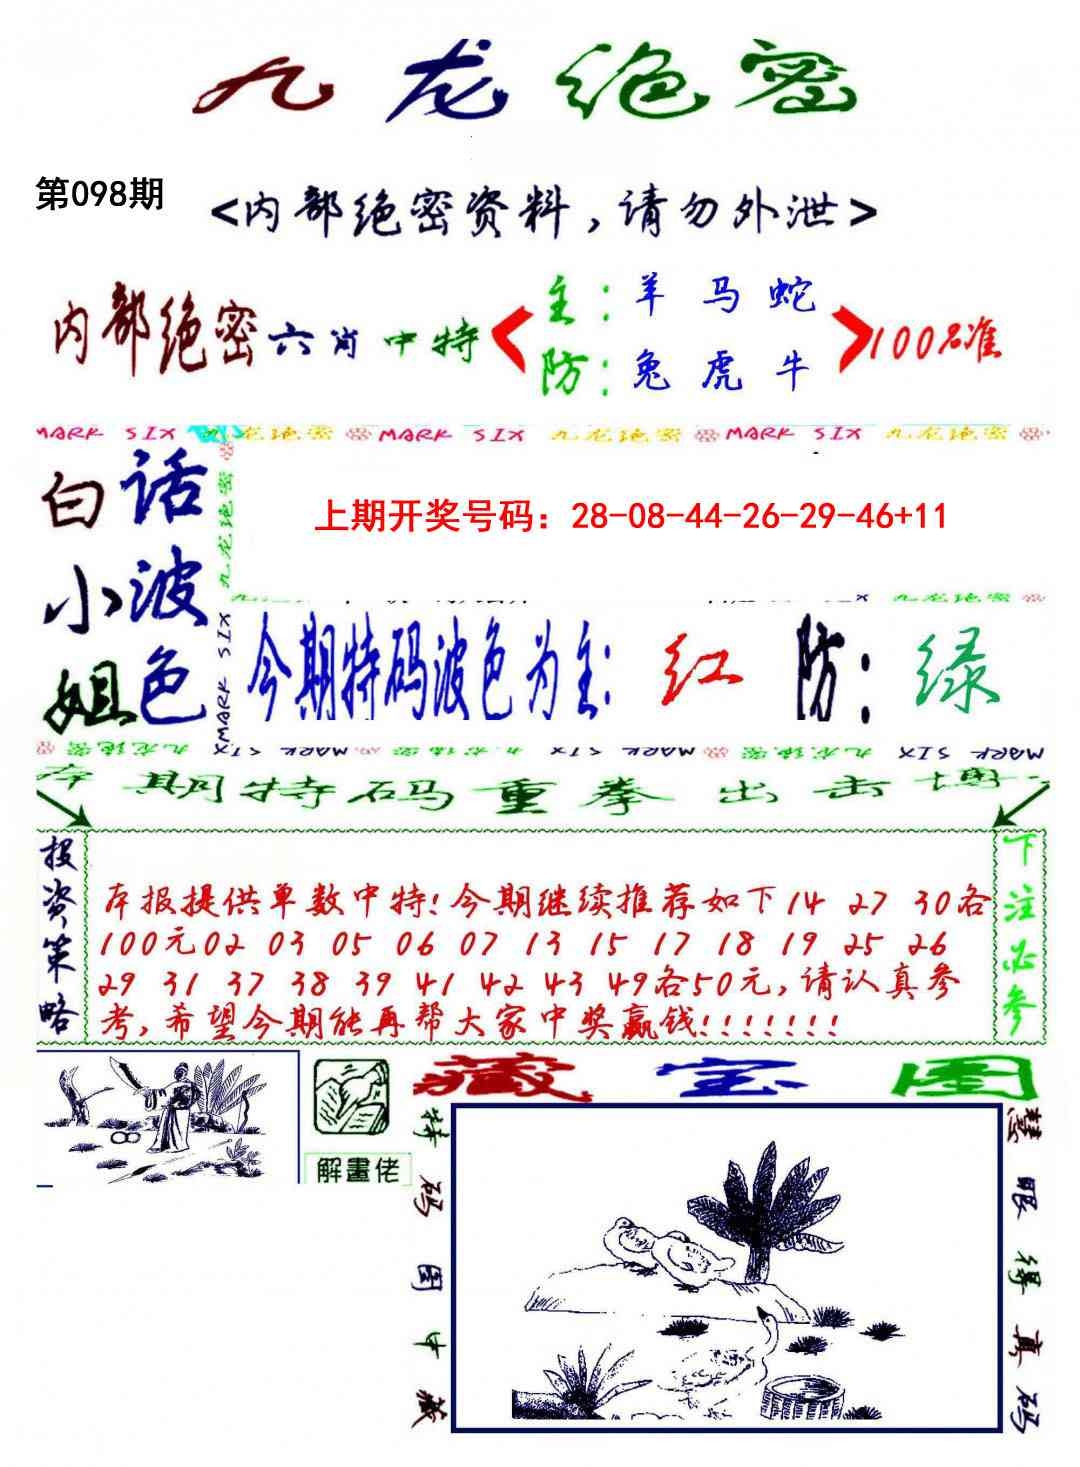 九龙绝密
第098期
<内部绝密资料，请勿外泄>
内部绝密六肖中特
主：羊 马 蛇
防：兔 虎 牛
100%准
MARK SIX 九龙绝密 MARK SIX 九龙绝密 MARK SIX 九龙绝密
白小姐
话波色
九龙绝密
MARK SIX
上期开奖号码：28-08-44-26-29-46+11
今期特码波色为主：红 防：绿
九龙绝密 MARK SIX 九龙绝密 MARK SIX 九龙绝密 MARK SIX
本期特码重拳出击博
投资策略
本报提供单数中特！今期继续推荐如下14 27 30各
100元02 03 05 06 07 13 15 17 18 19 25 26
29 31 37 38 39 41 42 43 49各50元，请认真参
考，希望今期能再帮大家中奖赢钱！！！！！！！
下注必参
解畫佬
藏宝图
特码图中藏
慧眼得真码